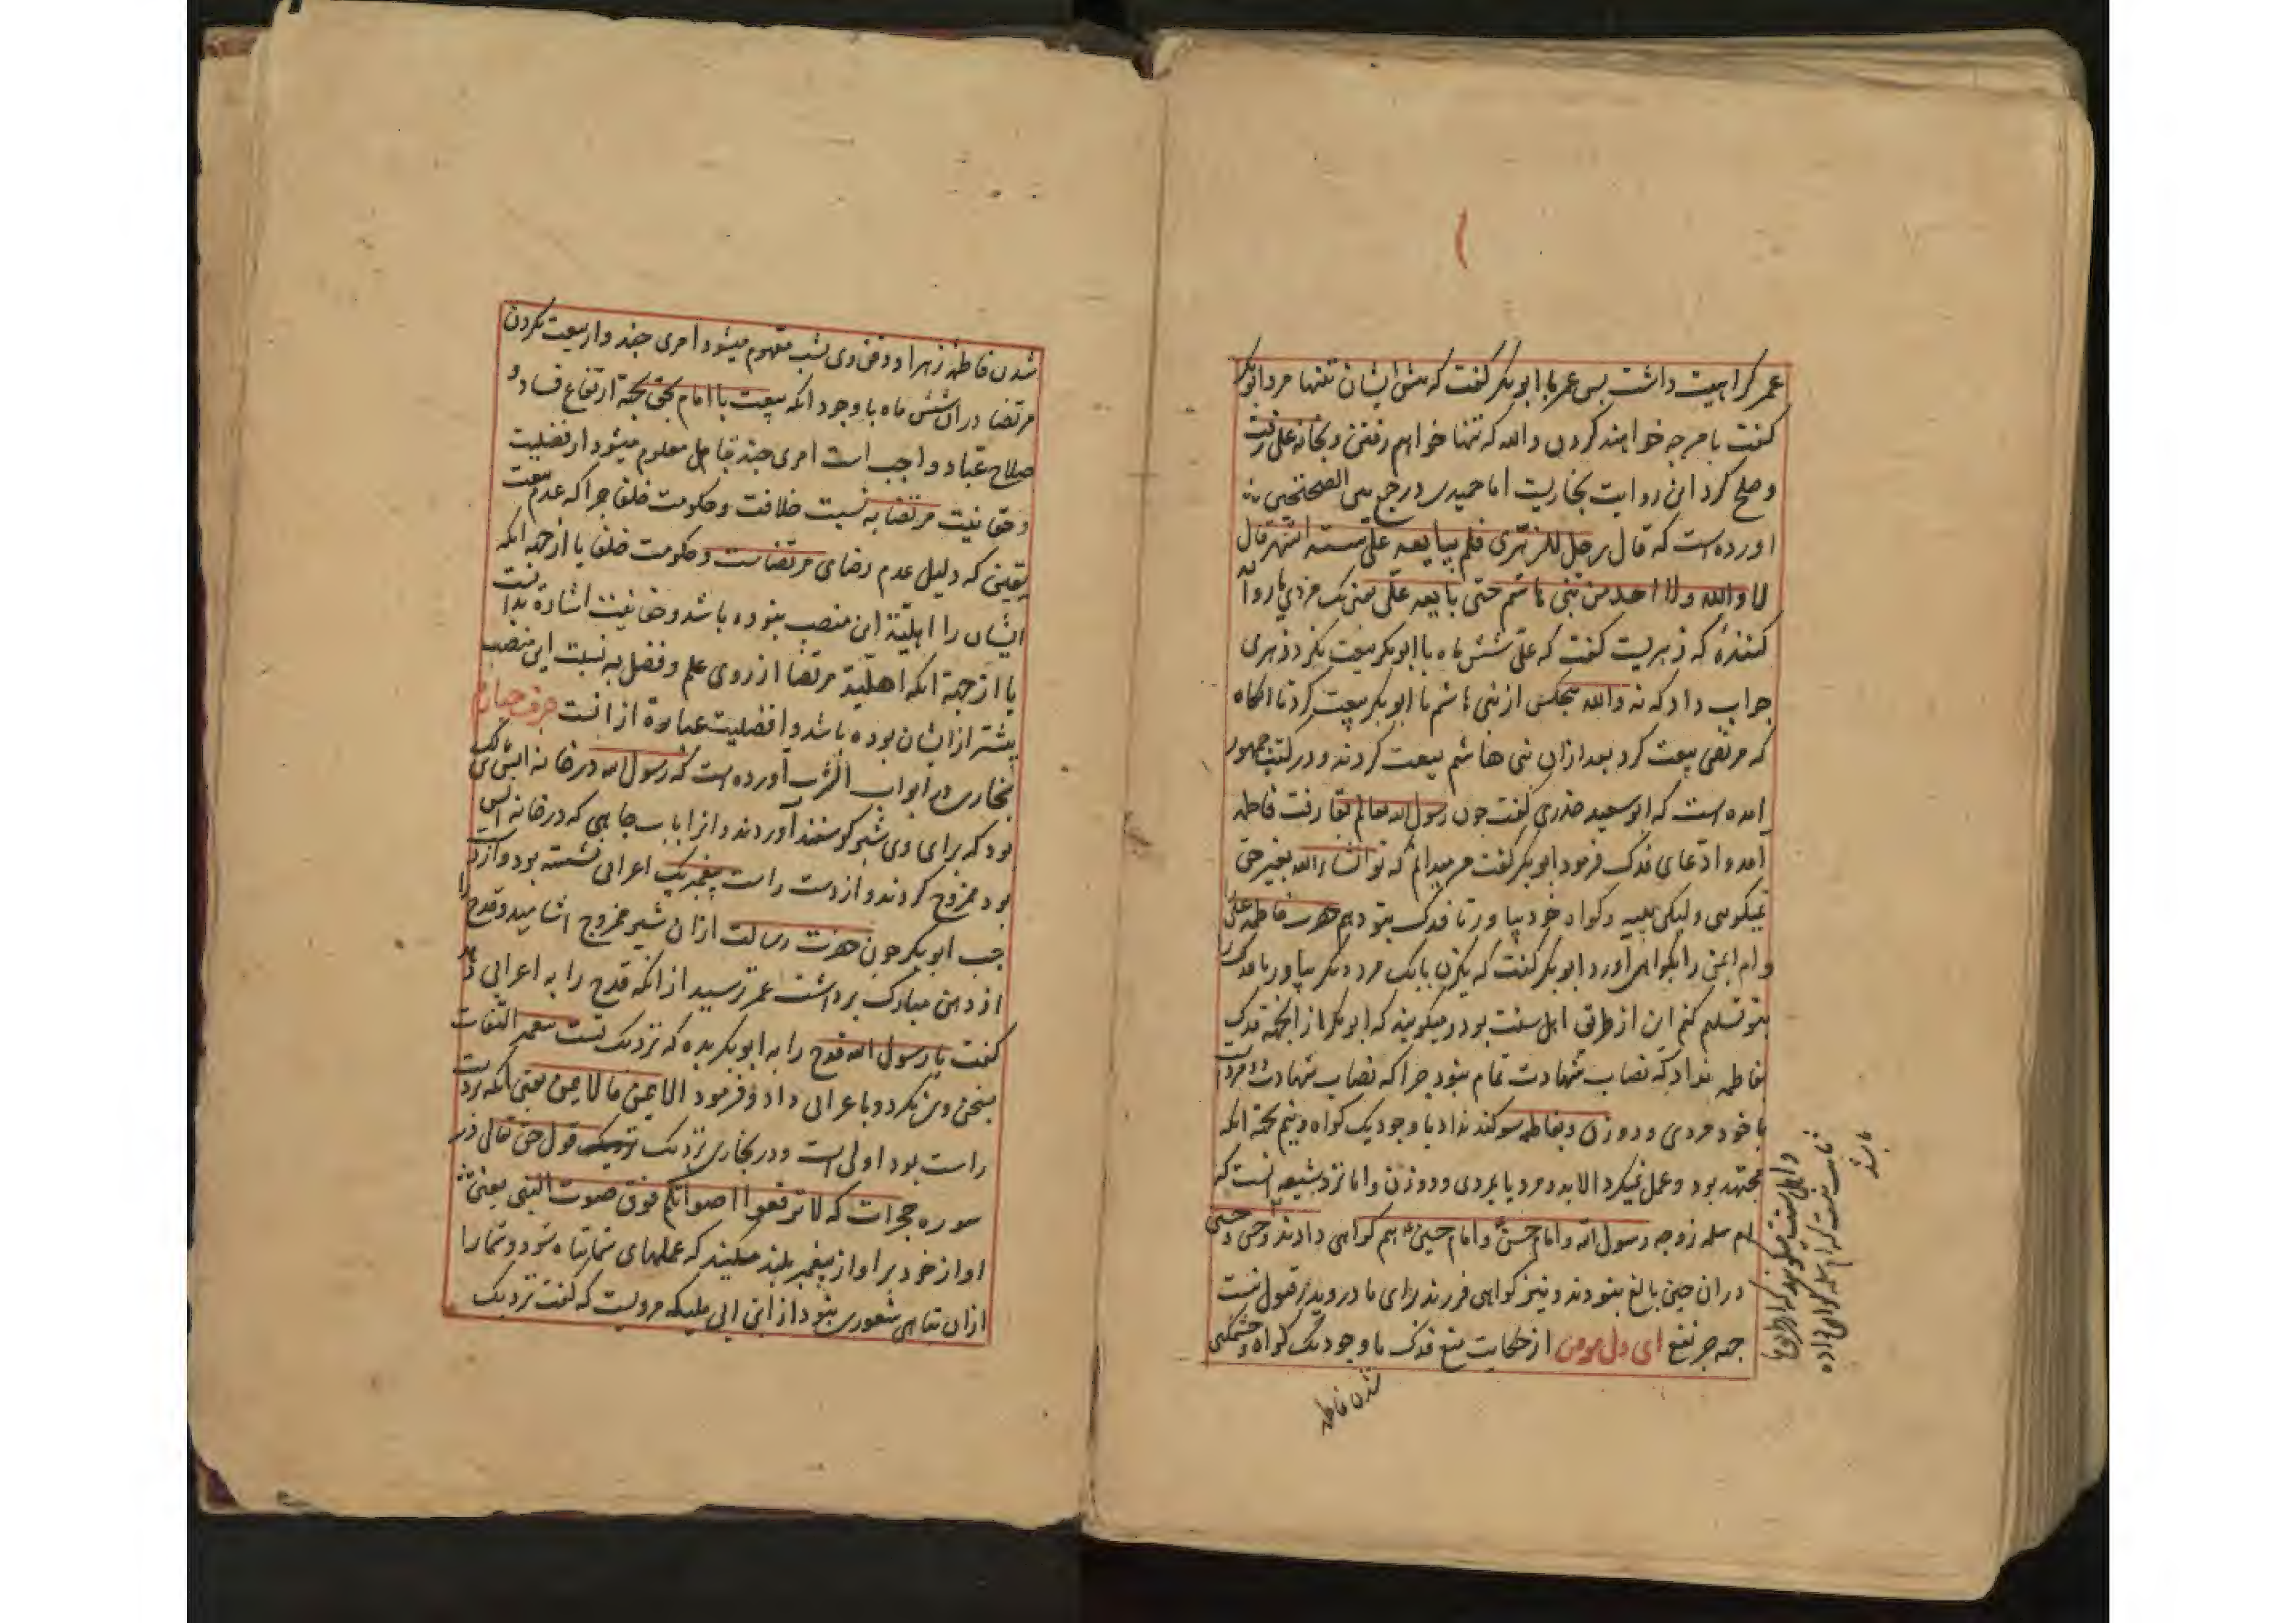 عمر کراهیت داشت پس عمر با ابوبکر گفت که پیش ایشان تنها مرو ابوبکر
گفت با من چه خواهند کردن والله که تنها خواهم رفتن و بخانه علی رفت
و صلح کرد این روایت بخاریست اما حمیدی در جمع بین الصحیحین
آورده است که قال رجل للزهری فلم یبایعه علی ستة اشهر قال
لا والله ولا احد من بنی هاشم حتی بایعه علی یعنی یک مردی با روا
کننده که زهریست گفت که علی شش ماه با ابوبکر بیعت نکرد زهری
جواب داد که نه والله هیچکس از بنی هاشم با ابوبکر بیعت کرد تا انگاه
که مرتضی بیعت کرد بعد ازان بنی هاشم بیعت کردند و در کتب جمهور
آمده است که ابوسعید خدری گفت چون رسول الله بعالم بقا رفت فاطمه
آمد و ادعای فدک فرمود ابوبکر گفت من میدانم که تو انشاء الله بغیر حق
نمیگویی ولیکن بینه و گواه خود بیاور تا فدک بتو دهم حضرت فاطمه علی
و ام ایمن را بگواهی آورد ابوبکر گفت که یکزن با یک مرد دیگر بیاور تا فدک را
بتو تسلیم کنم این از طریق اهل سنت بود و میگویند که ابوبکر از انجهة فدک
بفاطمه نداد که نصاب شهادت تمام نبود چرا که نصاب شهادت دو مرد است
با خود مردی و دو زن و بفاطمه سوگند نداد با وجود یک گواه و نیم بجهة انکه
مجتهد بود و عمل نمیکرد الا بدو مرد یا بمردی و دو زن و اما نزد شیعه انست که
ام سلمه زوجه رسول الله و امام حسن و امام حسین هم گواهی دادند و حسن و حسین
دران حین بالغ نبودند و نیز گواهی فرزند برای مادر و پدر قبول نیست
جهه جر نفع ای دل مومن از حکایت منع فدک با وجود یک گواه و خشمگین
شدن فاطمه
و اهل سنت میگویند که از طریق ما
ثابت نیست که ام سلمه گواهی داده
باشد
شدن فاطمه زهرا و دفن وی بشب مفهوم میشود امری چند و از بیعت نکردن
مرتضا دران شش ماه با وجود انکه بیعت با امام بحق بجهة ارتفاع فساد و
صلاح عباد واجب است امری چند بتامل معلوم میشود از افضلیت
و حقانیت مرتضا به نسبت خلافت و حکومت خلفا چرا که عدم بیعت
یقینی که دلیل عدم رضای مرتضاست و حکومت خلفا یا از جهة انکه
ایشان را اهلیة این منصب نبوده باشد و حقانیت اشارة بدانست
یا از جهة انکه اهلیة مرتضا از روی علم و فضل به نسبت این منصب
بیشتر از ایشان بوده باشد و افضلیت عبارة از انست حرف چهارم
بخاری در ابواب الشرب آورده است که رسول الله در خانه انس بن مالک
بود که برای وی شیر گوسفند آوردند و انرا باب چاهی که در خانه انس
بود ممزوج کردند و از دست راست پیغمبر یک اعرابی نشسته بود و از دست
چپ ابوبکر چون حضرت رسالت ازان شیر ممزوج اشامید و قدح را
از دهن مبارک برداشت عمر ترسید از انکه قدح را به اعرابی دهد
گفت یا رسول الله قدح را به ابوبکر بده که نزدیک تست پیغمبر التفات
بسخن وی نکرد و با عرابی داد و فرمود الایمن فالایمن یعنی انکه بر دست
راست بود اولی است و در بخاری نزدیک قول حق تعالی در
سوره حجرات که لا ترفعوا اصواتکم فوق صوت النبی یعنی
اواز خود بر اواز پیغمبر بلند مکنید که عملهای شما تباه شود و شما را
ازان تباهی شعوری نبود از ابن ابی ملیکه مرویست که گفت نزدیک